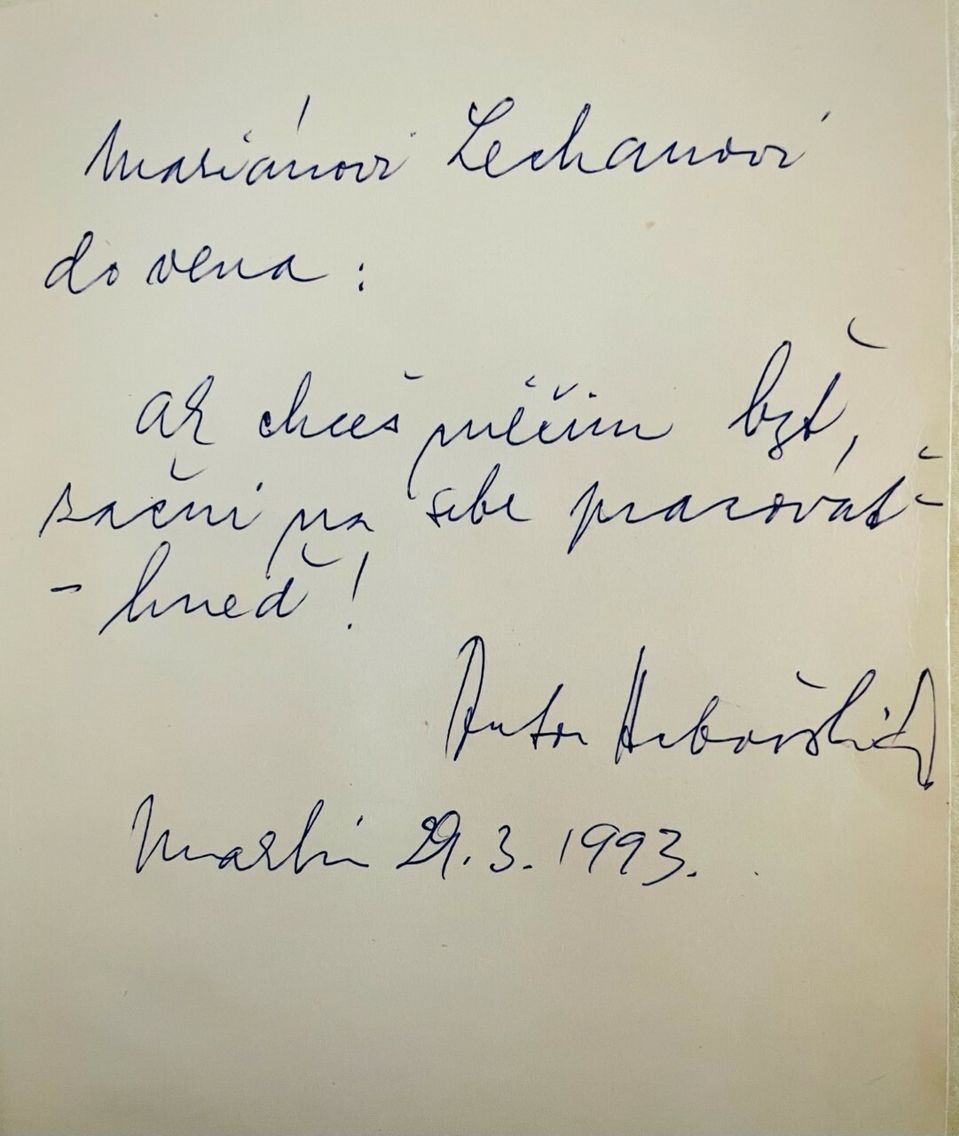 Mariánovi Lechanovi
do vena:
Ak chceš niečím byť,
začni na sebe pracovať
- hneď!
Anton Hykisch
Martin 29.3.1993.